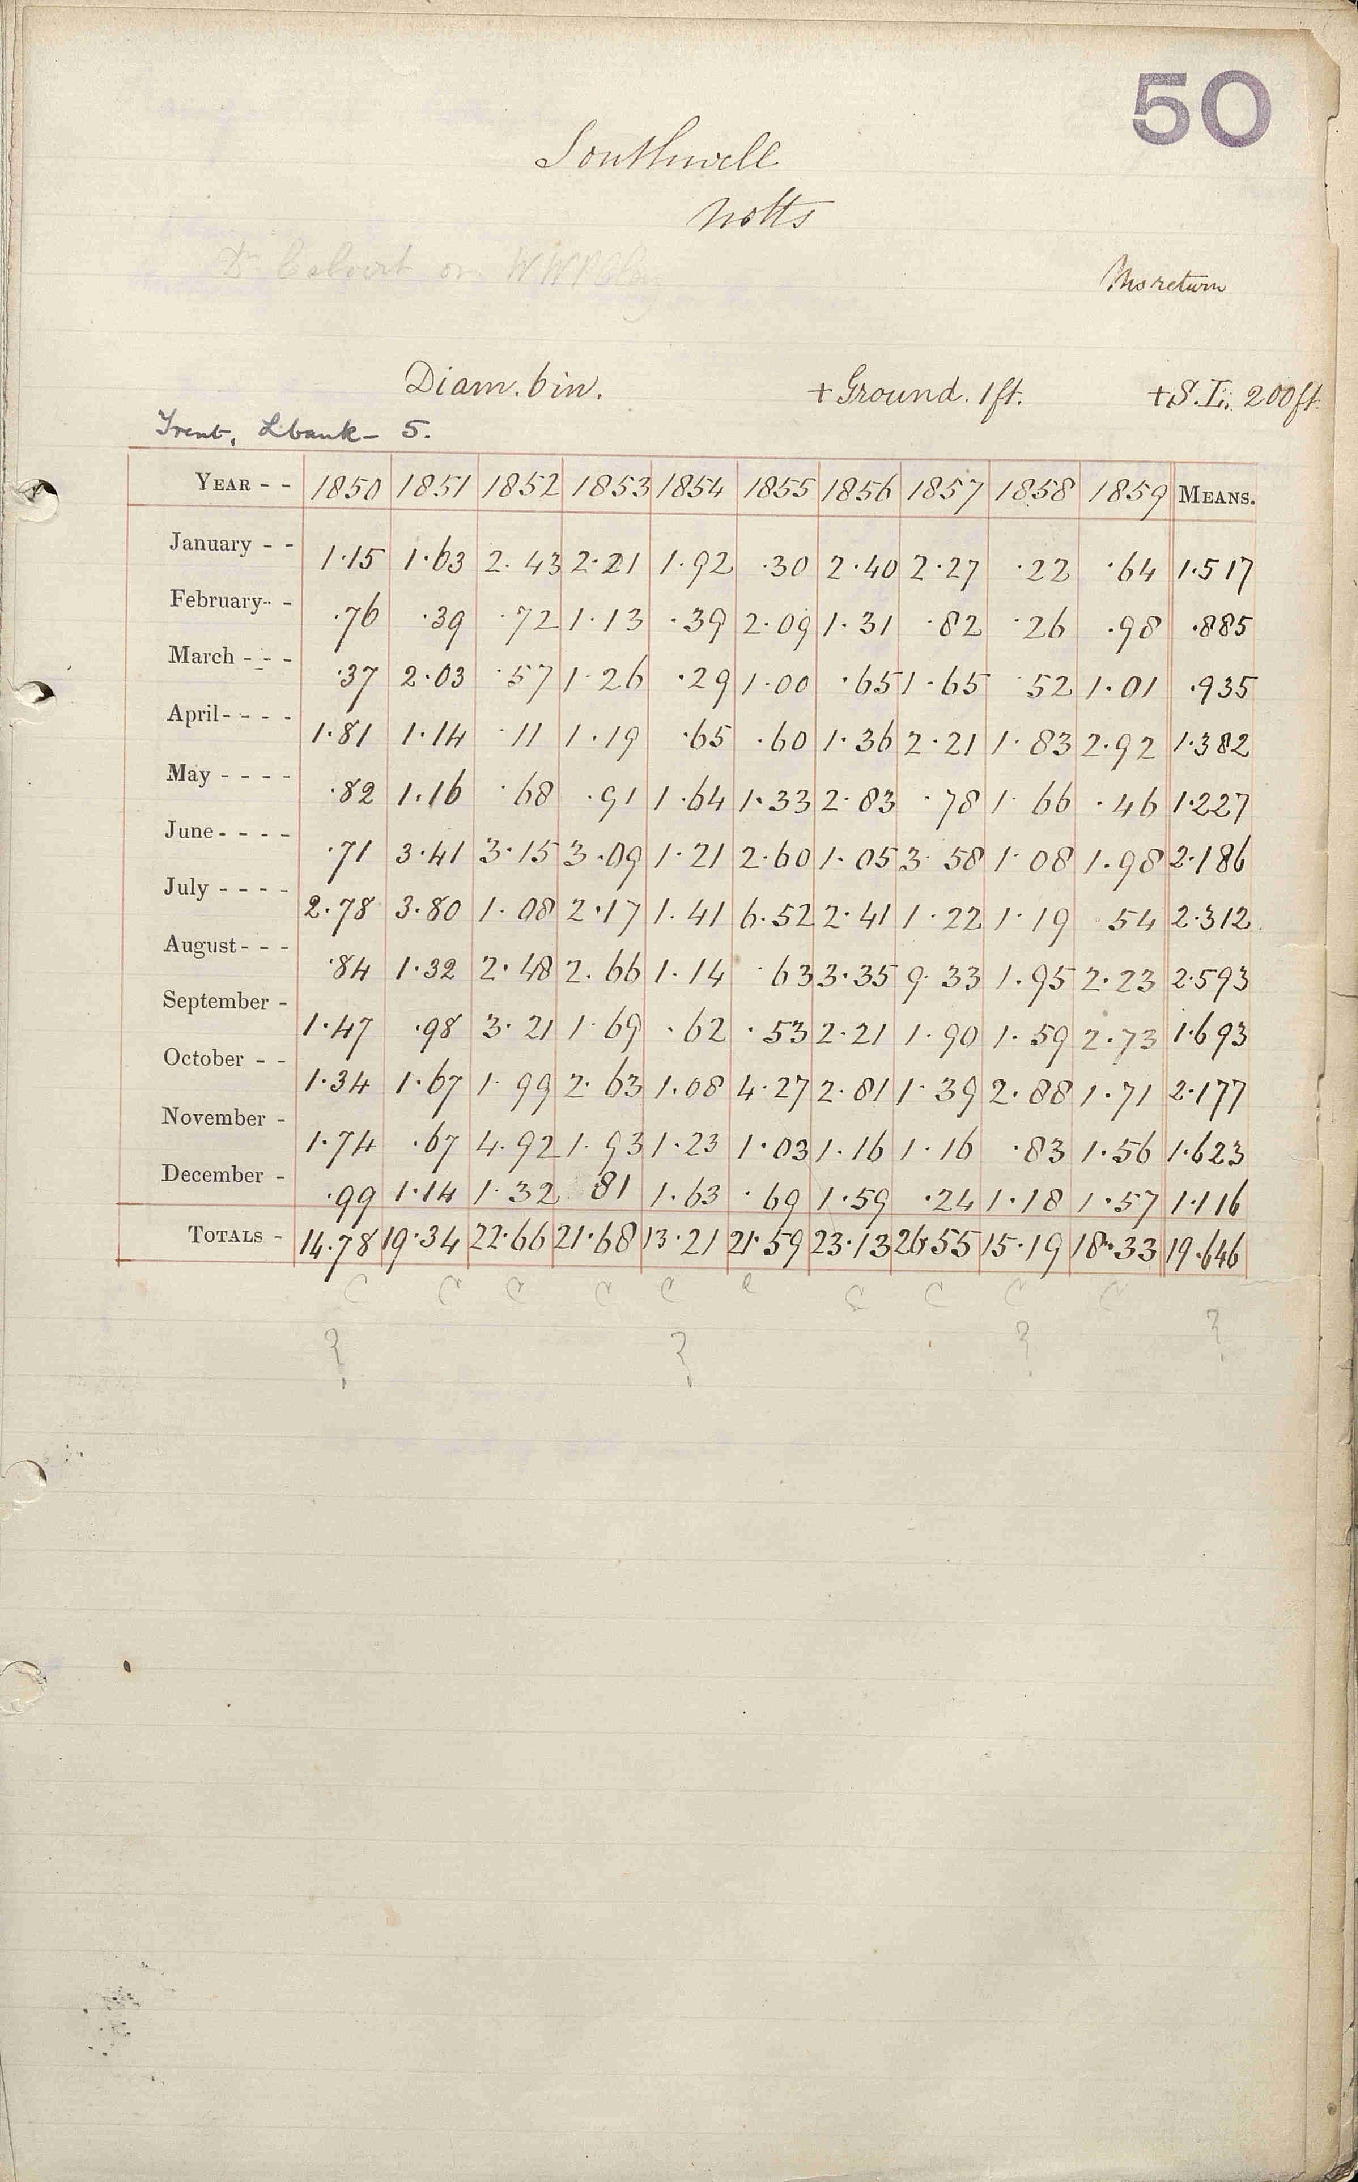 50
Southwell
Notts
Dr Calvert or W W P Clay
Ms return
Diam. 6 in. + Ground. 1 ft. + S. L. 200 ft.
Trent, L bank - 5.
YEAR - - 1850 1851 1852 1853 1854 1855 1856 1857 1858 1859 MEANS.
January - - 1·15 1·63 2·43 2·21 1·92 ·30 2·40 2·27 ·22 ·64 1·517
February - - ·76 ·39 ·72 1·13 ·39 2·09 1·31 ·82 ·26 ·98 ·885
March - - - ·37 2·03 ·57 1·26 ·29 1·00 ·65 1·65 ·52 1·01 ·935
April - - - - 1·81 1·14 ·11 1·19 ·65 ·60 1·36 2·21 1·83 2·92 1·382
May - - - - ·82 1·16 ·68 ·91 1·64 1·33 2·83 ·78 1·66 ·46 1·227
June - - - - ·71 3·41 3·15 3·09 1·21 2·60 1·05 3·58 1·08 1·98 2·186
July - - - - 2·78 3·80 1·08 2·17 1·41 6·52 2·41 1·22 1·19 ·54 2·312
August - - - ·84 1·32 2·48 2·66 1·14 ·63 3·35 9·33 1·95 2·23 2·593
September - 1·47 ·98 3·21 1·69 ·62 ·53 2·21 1·90 1·59 2·73 1·693
October - - 1·34 1·67 1·99 2·63 1·08 4·27 2·81 1·39 2·88 1·71 2·177
November - 1·74 ·67 4·92 1·93 1·23 1·03 1·16 1·16 ·83 1·56 1·623
December - ·99 1·14 1·32 81 1·63 ·69 1·59 ·24 1·18 1·57 1·116
TOTALS - 14·78 19·34 22·66 21·68 13·21 21·59 23·13 26·55 15·19 18·33 19·646
C C C C C C C C C C
? ? ? ?